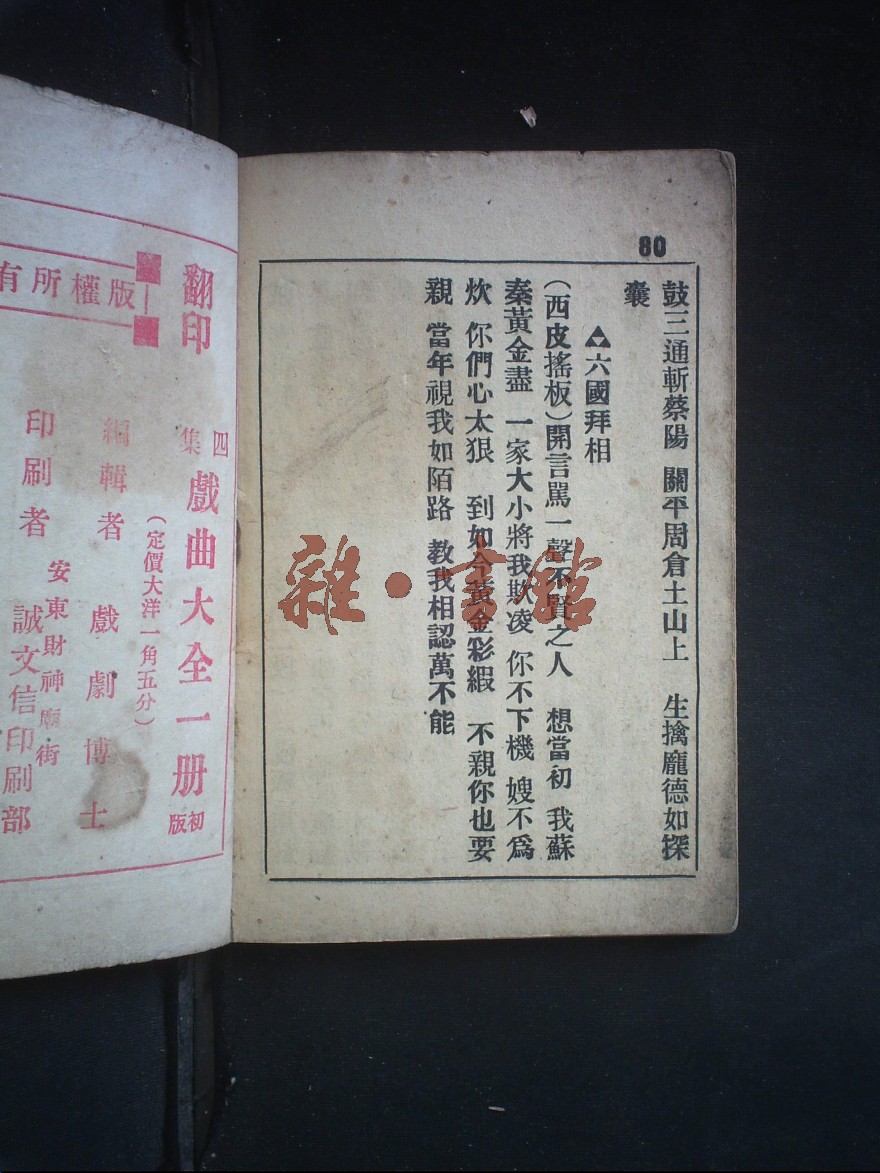 80
鼓三通斬蔡陽 關平周倉土山上 生擒龐德如探
囊
六國拜相
(西皮搖板)開言罵一聲不賢之人 想當初 我蘇
秦黃金盡 一家大小將我欺凌 你不下機 嫂不爲
炊 你們心太狠 到如今黃金彩緞 不親你也要
親 當年視我如陌路 教我相認萬不能
雜·書館
翻印
四集 戲曲大全一册 初版
(定價大洋一角五分)
編輯者 戲劇博士
安東財神廟街
印刷者 誠文信印刷部
版權所有